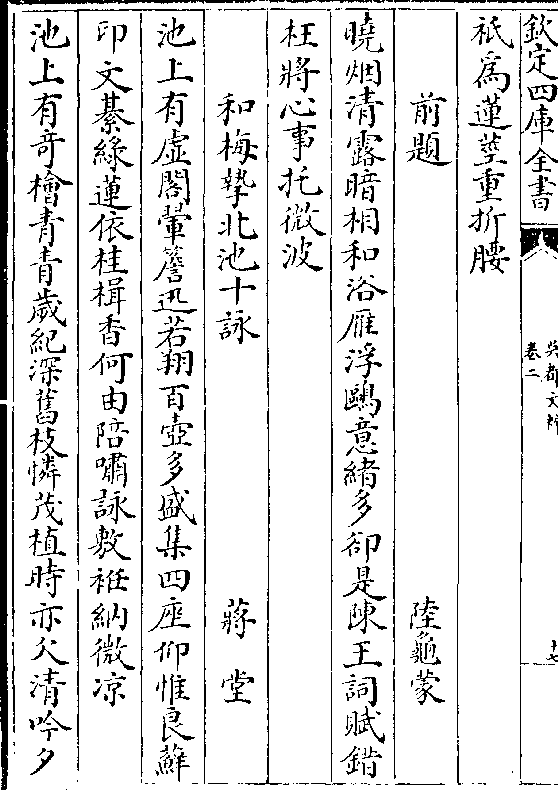 欽定四庫全書
吳都文粹
卷二
十七
祇為蓮莖重折腰
前題
陸龜蒙
曉烟清露暗相和浴雁浮鷗意緒多卻是陳王詞賦錯
枉將心事托微波
和梅摯北池十詠
蔣堂
池上有虛閣翬簷迅若翔百壺多盛集四座仰惟良蘚
印文綦綠蓮依桂楫香何由陪嘯詠敷袵納微凉
池上有奇檜青青歲紀深舊枝憐茂植時亦父清吟夕